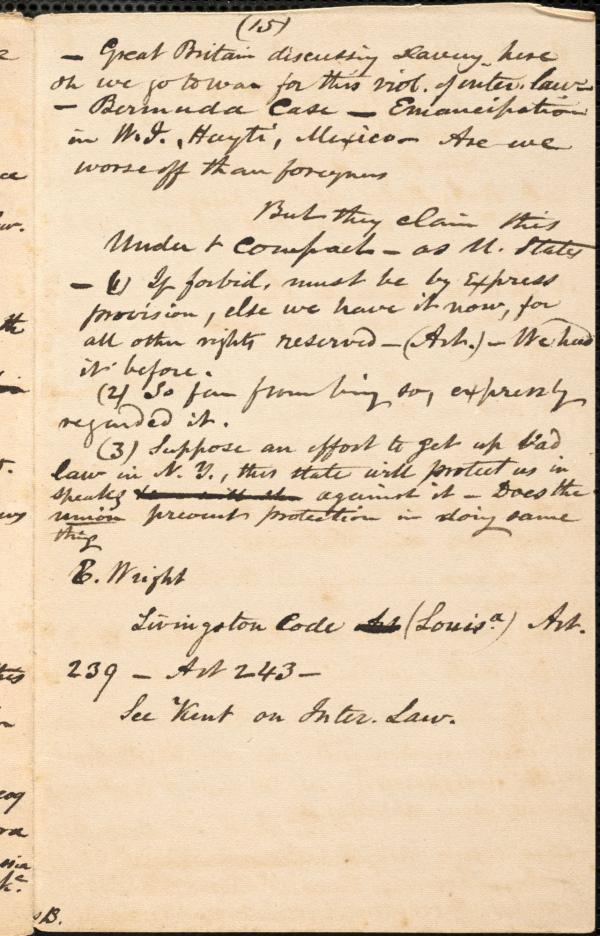 (15)
— Great Britain discussing slavery here
sh we go to war for this viol. of inter. law
— Bermuda Case — Emancipation
in W.I., Hayti, Mexico — Are we
worse off than foreigners
But they claim this
Under t compact — as U. States
— (1) If forbid, must be by Express
provision, else we have it now, for
all other rights reserved — (Art.) — We had
it before.
(2) So far from being so, expressly
regarded it.
(3) Suppose an effort to get up bad
law in N. Y., this state will protect us in
speakg against it — Does the
union prevent protection in doing same
thing
E. Wright
Livingston Code (Louis.a) Art.
239 — Art 243 —
See Kent on Inter. Law.